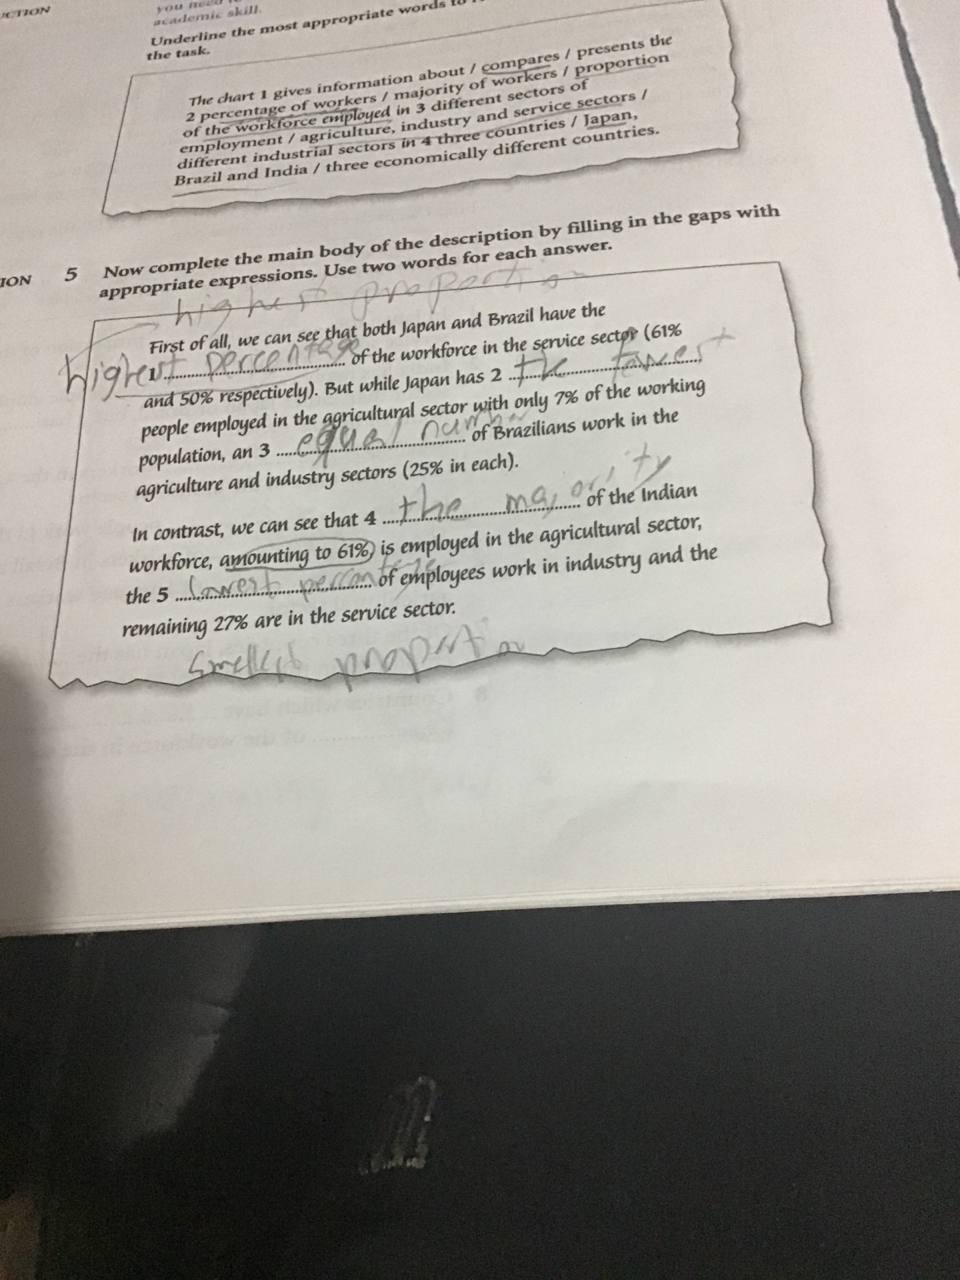 UCTION
you need
academic skill.
Underline the most appropriate words to
the task.
The chart 1 gives information about / compares / presents the
2 percentage of workers / majority of workers / proportion
of the workforce employed in 3 different sectors of
employment / agriculture, industry and service sectors /
different industrial sectors in 4 three countries / Japan,
Brazil and India / three economically different countries.
ION 5 Now complete the main body of the description by filling in the gaps with
appropriate expressions. Use two words for each answer.
highest proportion
First of all, we can see that both Japan and Brazil have the
1 Highest percentage of the workforce in the service sector (61%
and 50% respectively). But while Japan has 2 the lowest
people employed in the agricultural sector with only 7% of the working
population, an 3 equal number of Brazilians work in the
agriculture and industry sectors (25% in each).
In contrast, we can see that 4 the majority of the Indian
workforce, amounting to 61%, is employed in the agricultural sector,
the 5 lowest percentage of employees work in industry and the
remaining 27% are in the service sector.
Smellest proportion